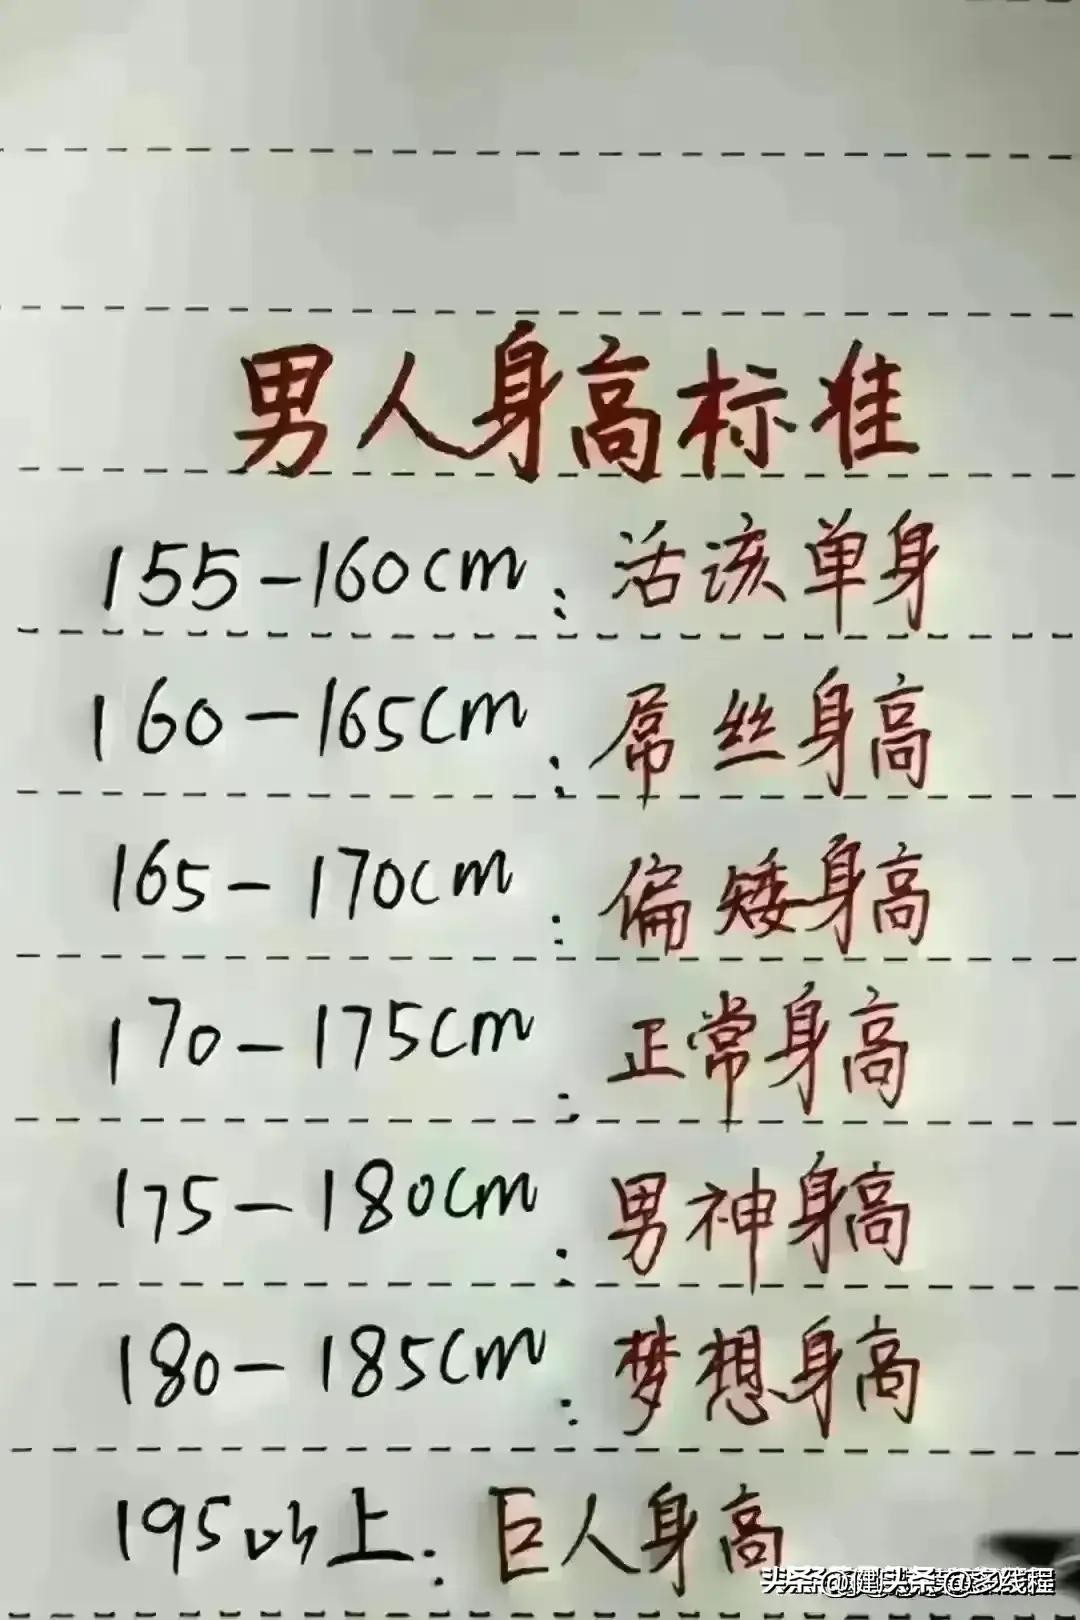 男人身高标准
155-160cm:活该单身
160-165cm:屌丝身高
165-170cm:偏矮身高
170-175cm:正常身高
175-180cm:男神身高
180-185cm:梦想身高
195以上:巨人身高
头条@多线程